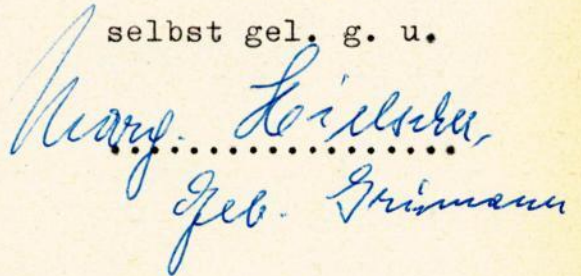 selbst gel. g. u.
Marg. Hielscher,
geb. Grimann